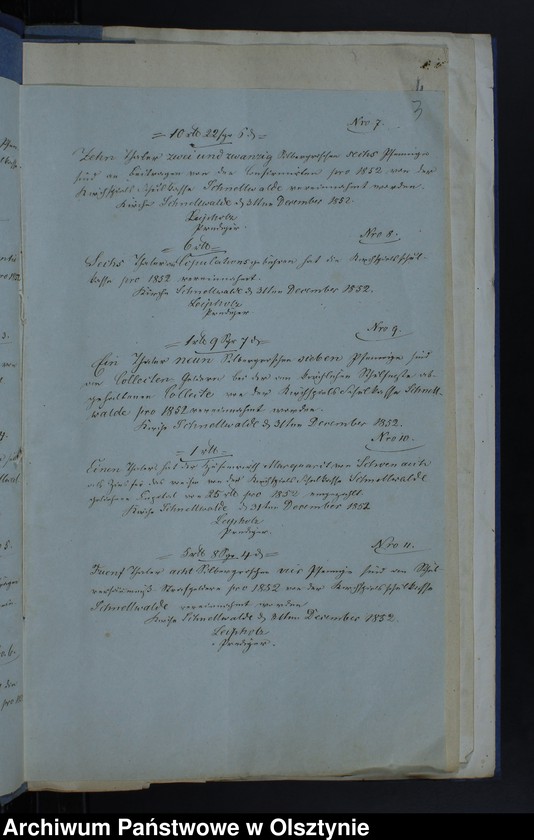 4
3
Nro 7.
= 10 rtl 22 sgr 6 d =
Zehn Thaler zwei und zwanzig Silbergroschen sechs Pfennige
sind an Beitragen von den Confirmirten pro 1852 von der
Kirchspiels Schulkasse Schnellwalde vereinnahmt worden.
Kirche Schnellwalde d 31ten December 1852.
Leipholz
Prediger.
Nro 8.
= 6 rtl =
Sechs Thaler Copulationsgebühren hat die Kirchspielsschul-
kasse pro 1852 vereinnahmt.
Kirche Schnellwalde d 31ten December 1852.
Leipholz
Prediger
Nro 9.
= 1 rtl 9 Sgr 7 d =
Ein Thaler neun Silbergroschen sieben Pfennige sind
an Collecten Geldern bei der am kirchlichen Schulfeste ab-
gehaltenen Collecte von der Kirchspielsschulkasse Schnell-
walde pro 1852 vereinnahmt worden.
Kirche Schnellwalde d 31ten December 1852.
Nro 10.
= 1 rtl =
Einen Thaler hat der Marquardt von
als Zinsen von der Kirchspiels Schulkasse Schnellwalde
Capital von 25 rtl pro 1852 eingezahlt.
Kirche Schnellwalde d 31ten December 1852
Leipholz
Prediger.
Nro 11.
= 5 rtl 8 Sgr 4 d =
Fuenf Thaler acht Silbergroschen vier Pfennige sind an Schul
versäumniß Strafgelder pro 1852 von der Kirchspielsschulkasse
Schnellwalde vereinnahmt worden
Kirche Schnellwalde d 31ten December 1852.
Leipholz
Prediger.
Archiwum Państwowe w Olsztynie